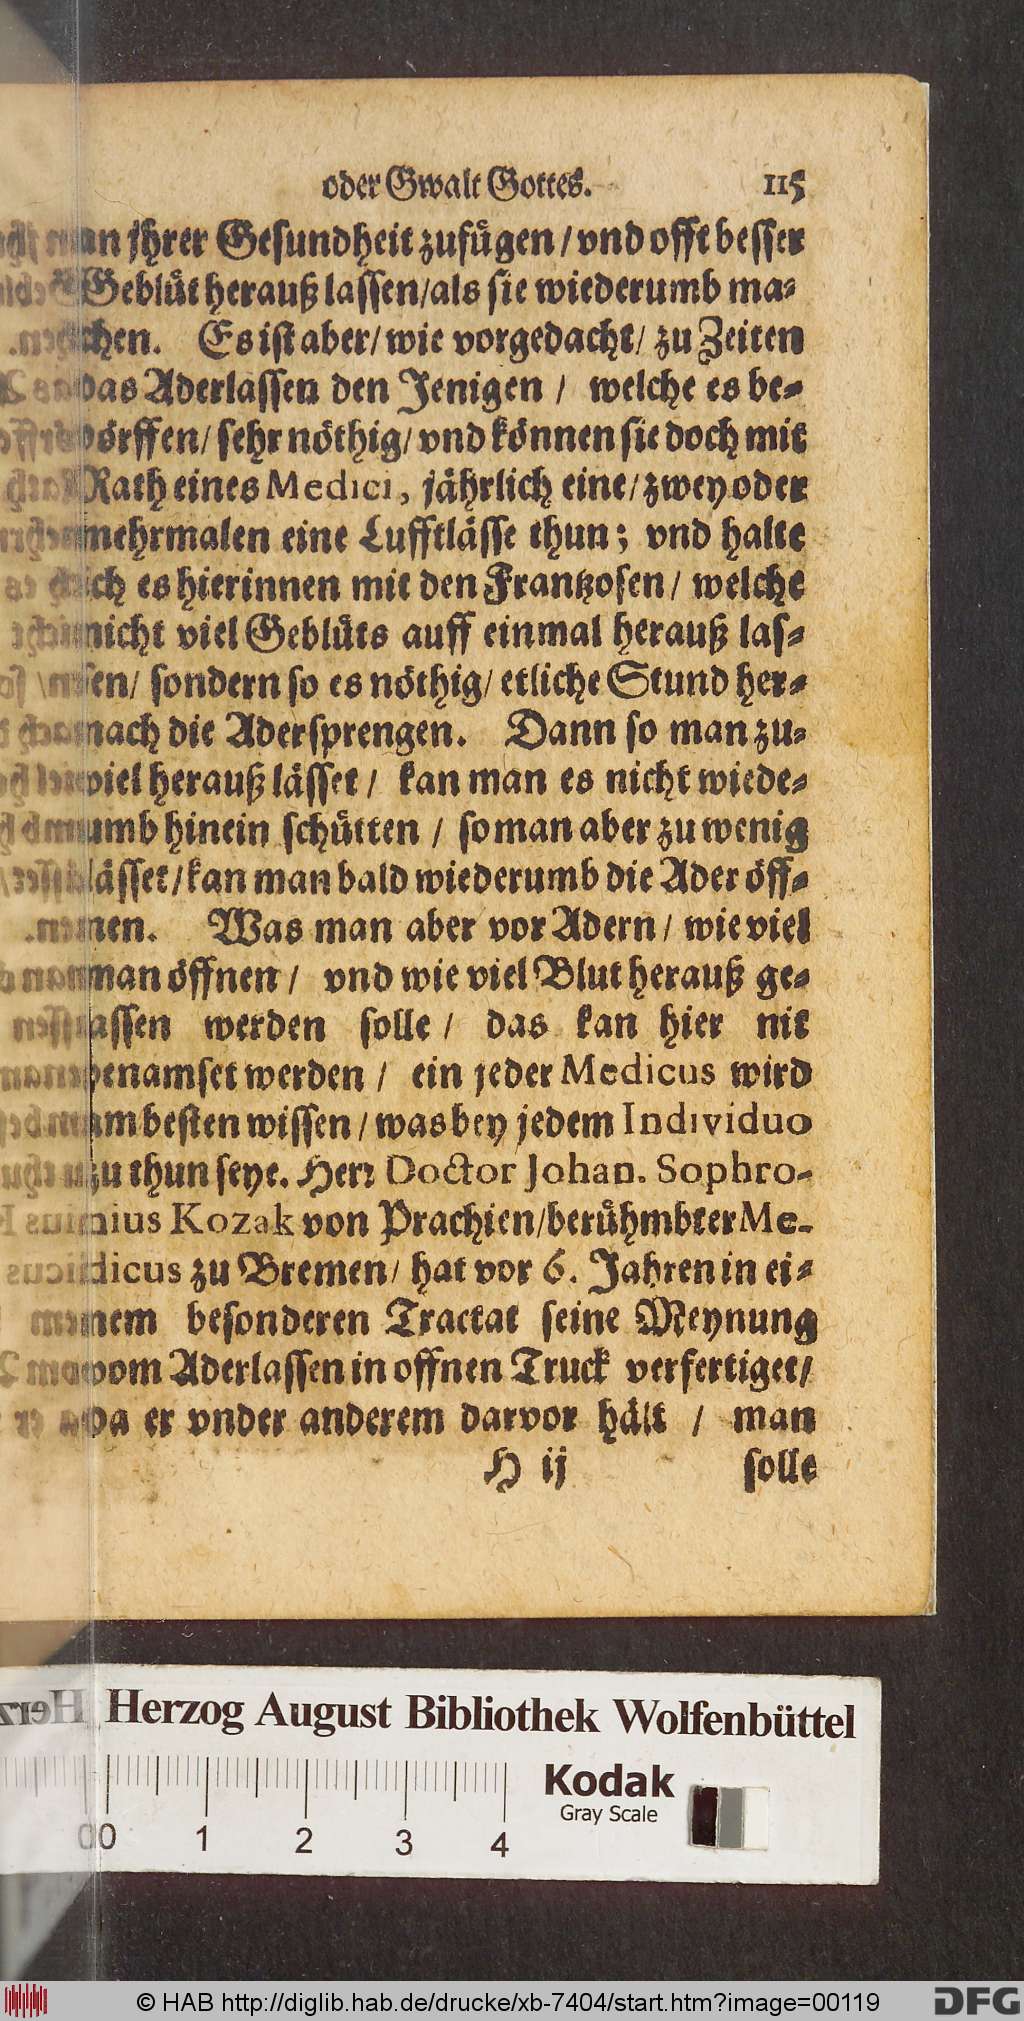 oder Gwalt Gottes. 115
man jhrer Gesundheit zufügen / vnd offt besser
Geblüt herauß lassen / als sie wiederumb ma-
chen. Es ist aber / wie vorgedacht / zu Zeiten
das Aderlassen den Jenigen / welche es be-
dörffen / sehr nöthig / vnd können sie doch mit
Rath eines Medici, jährlich eine / zwey oder
mehrmalen eine Lufftlässe thun; vnd halte
ich es hierinnen mit den Frantzosen / welche
nicht viel Geblüts auff einmal herauß las-
sen / sondern so es nöthig / etliche Stund her-
nach die Adersprengen. Dann so man zu-
viel herauß lässet / kan man es nicht wiede-
umb hinein schütten / so man aber zu wenig
lässet / kan man bald wiederumb die Ader öff-
nen. Was man aber vor Adern / wie viel
man öffnen / vnd wie viel Blut herauß ge-
lassen werden solle / das kan hier nit
benamset werden / ein jeder Medicus wird
am besten wissen / was bey jedem Individuo
zu thun seye. Herr Doctor Johan. Sophro-
nius Kozak von Prachien / berühmbter Me-
dicus zu Bremen / hat vor 6. Jahren in ei-
nem besonderen Tractat seine Meynung
vom Aderlassen in offnen Truck verfertiget /
da er vnder anderem darvor hält / man
H ij solle
Herzog August Bibliothek Wolfenbüttel
0 1 2 3 4
Kodak
Gray Scale
© HAB http://diglib.hab.de/drucke/xb-7404/start.htm?image=00119
DFG